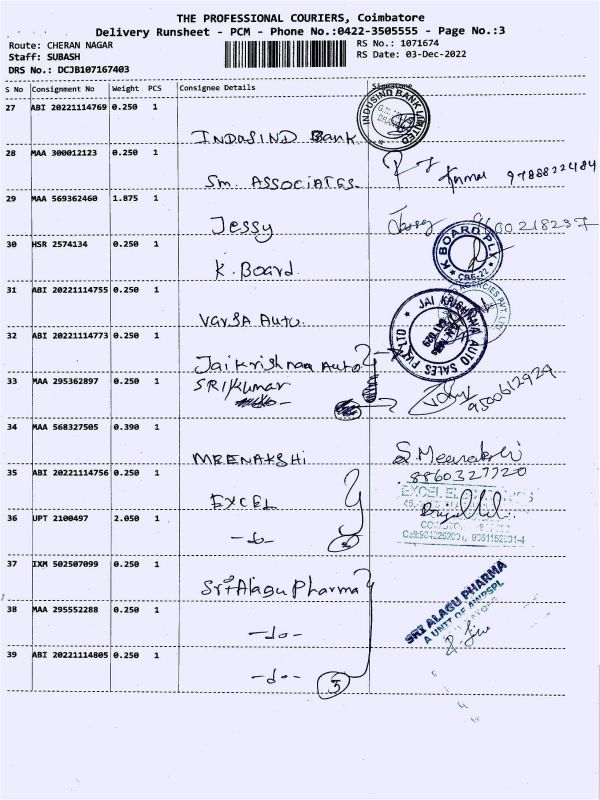 THE PROFESSIONAL COURIERS, Coimbatore
Delivery Runsheet - PCM - Phone No.:0422-3505555 - Page No.:3
Route: CHERAN NAGAR
RS No.: 1071674
Staff: SUBASH
RS Date: 03-Dec-2022
DRS No.: DCJB107167403
S No Consignment No Weight PCS Consignee Details Signature
27 ABI 20221114769 0.250 1
INDUSIND Bank
INDUSIND BANK LIMITED
28 MAA 300012123 0.250 1
Sm. ASSOCIATES
9788822484
29 MAA 569362460 1.875 1
Jessy
9600218237
30 HSR 2574134 0.250 1
K. Board
K BOARD PLY
CBE-22
31 ABI 20221114755 0.250 1
Varsa Auto.
AGENCIES PVT. LTD
32 ABI 20221114773 0.250 1
Jaikrishnaa Auto
JAI KRISHNAA AUTO SALES P LTD
33 MAA 295362897 0.250 1
SRIKumar
9500612929
34 MAA 568327505 0.390 1
MEENAKSHI
S. Meenakshi
8860327720
35 ABI 20221114756 0.250 1
EXCEL
EXCEL
36 UPT 2100497 2.050 1
2
37 IXM 502507099 0.250 1
Sri Alagu Pharma
SRI ALAGU PHARMA
A UNIT OF AWPSPL
38 MAA 295552288 0.250 1
-do-
39 ABI 20221114805 0.250 1
-do-
3